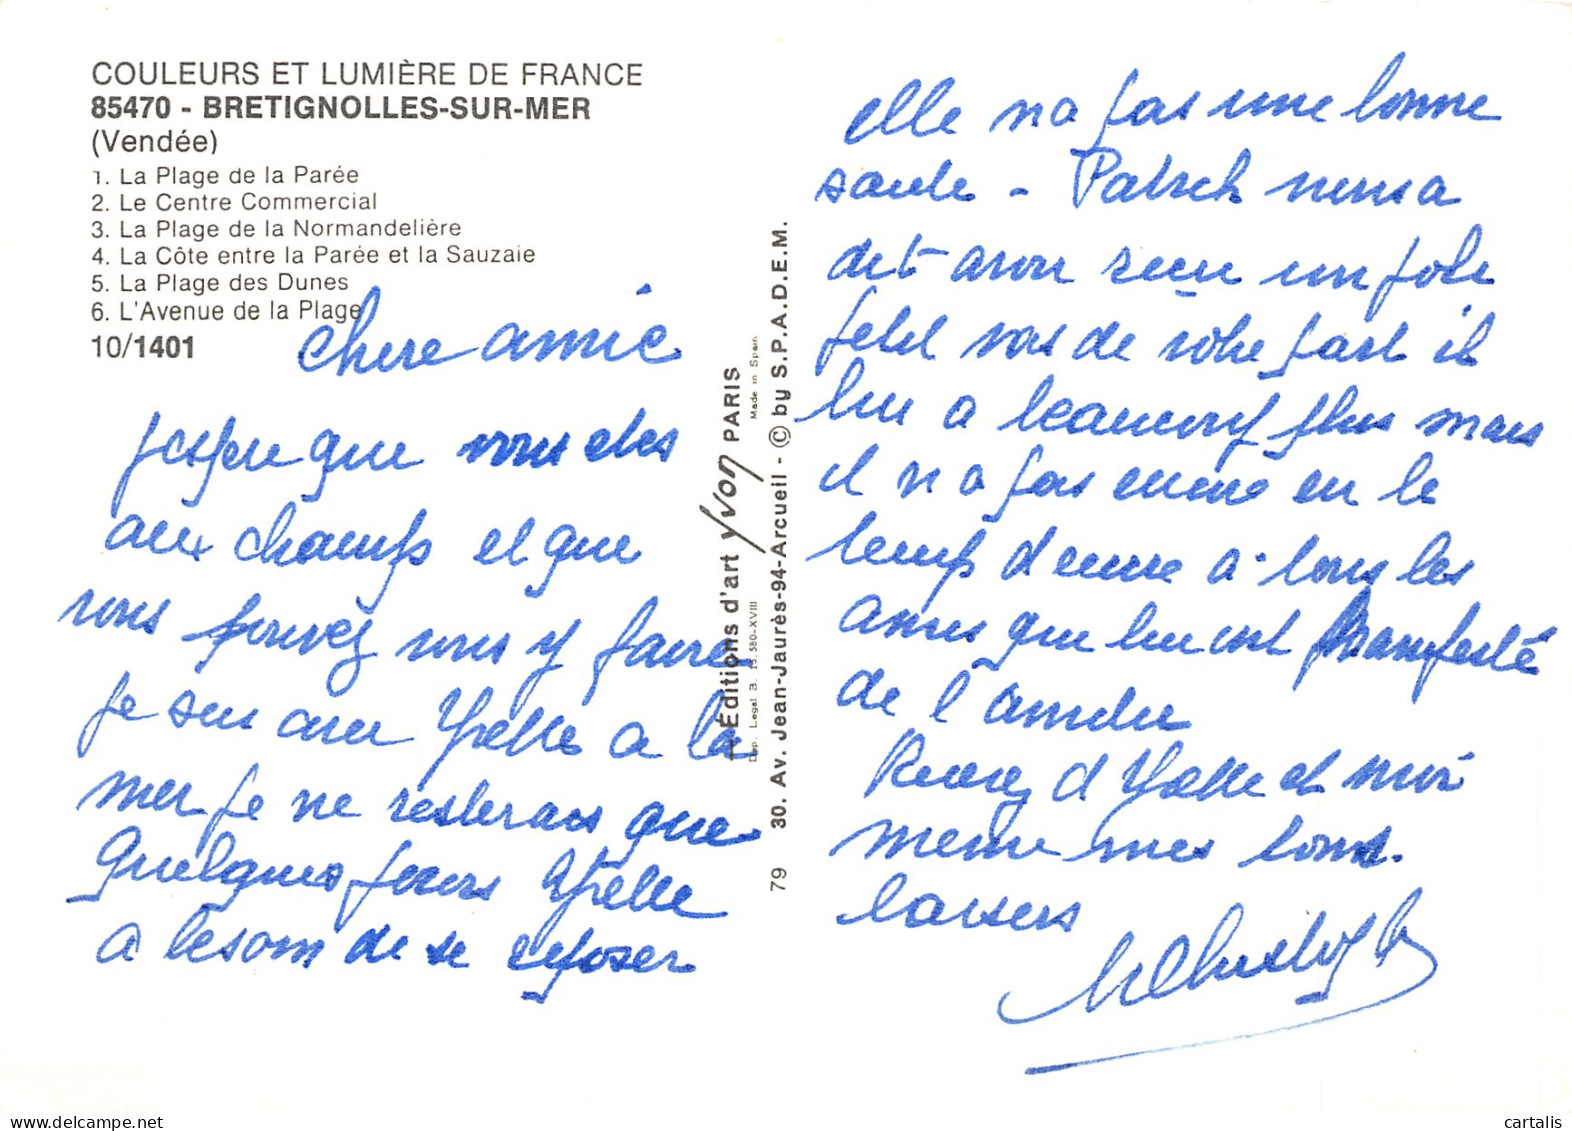 COULEURS ET LUMIÈRE DE FRANCE
85470 - BRETIGNOLLES-SUR-MER
(Vendée)
1. La Plage de la Parée
2. Le Centre Commercial
3. La Plage de la Normandelière
4. La Côte entre la Parée et la Sauzaie
5. La Plage des Dunes
6. L'Avenue de la Plage
10/1401
chere amie
jespere que vous etes
aux champs et que
vous pouvez vous y faire
je suis avec Yvelle a la
mer je ne resterais que
quelques jours Yvelle
a besoin de se reposer
Editions d'art Yvon PARIS
Dep. Legal B. 15.580-XVIII
Made in Spain
30. Av. Jean-Jaurès-94-Arcueil - © by S.P.A.D.E.M.
79
elle n a pas une bonne
sante - Patrick nous a
dit avoir reçu un joli
petit mot de votre part il
lui a beaucoup plus mais
il n a pas encore eu le
temps d ecrire a tous les
amis que lui ont manifesté
de l amitie
Recevez d Yvelle et moi
meme mes tous
baisers